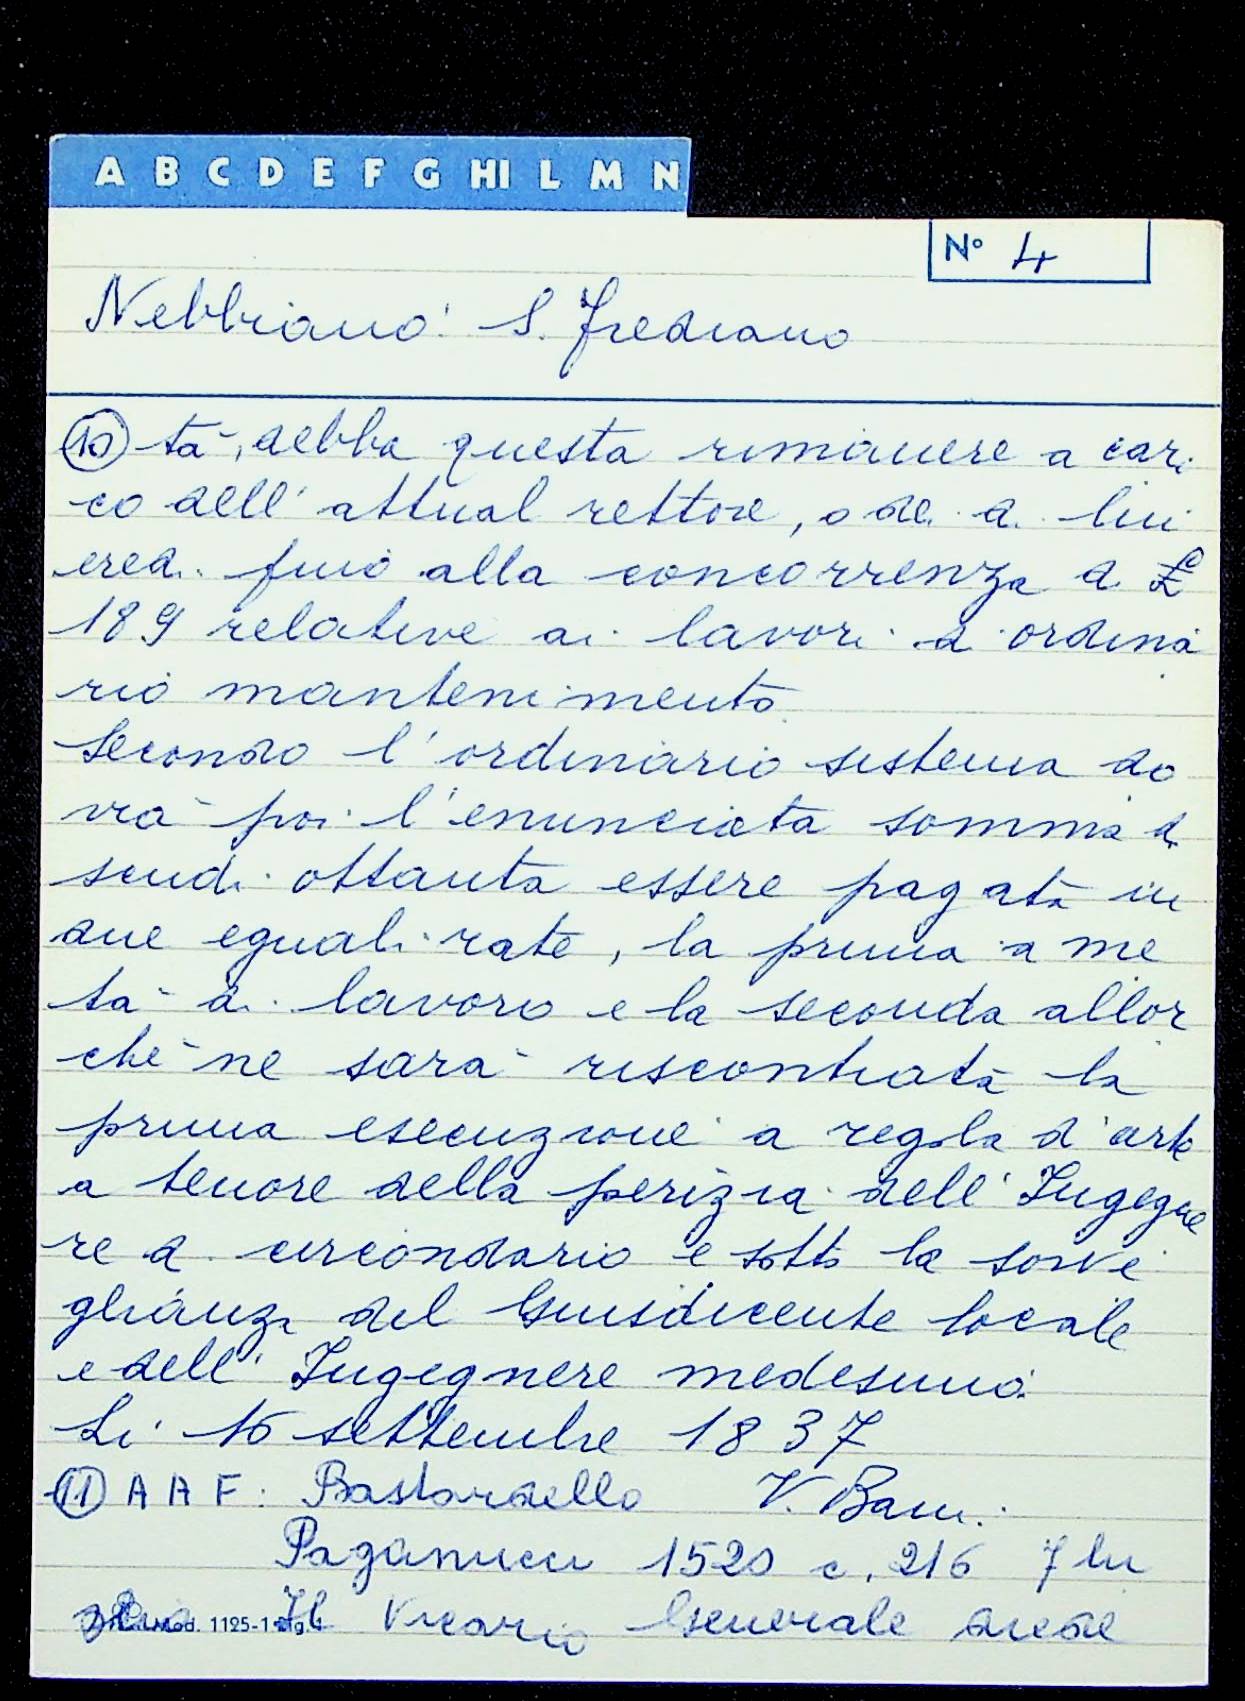 A B C D E F G HI L M N
N° 4
Nebbiano: S. Frediano
(10) tà, debba questa rimanere a cari
co dell'attual rettore, o de di lui
eredi fino alla concorrenza di £
189 relative ai lavori di ordina
rio mantenimento
Secondo l'ordinario sistema do
vrà poi l'enunciata somma di
scudi ottanta essere pagata in
due eguali rate, la prima a me
tà di lavoro e la seconda allor
chè ne sarà riscontrata la
prima esecuzione a regola d'arte
a tenore della perizia dell'Ingegne
re di circondario e sotto la sorve
glianza del Giusdicente locale
e dell'Ingegnere medesimo.
Li 16 settembre 1837
(11) A A F: Bastardello V. Bani:
Paganucci 1520 c. 216 7 lu
Mod. 1125-1 Il Vicario Generale diede